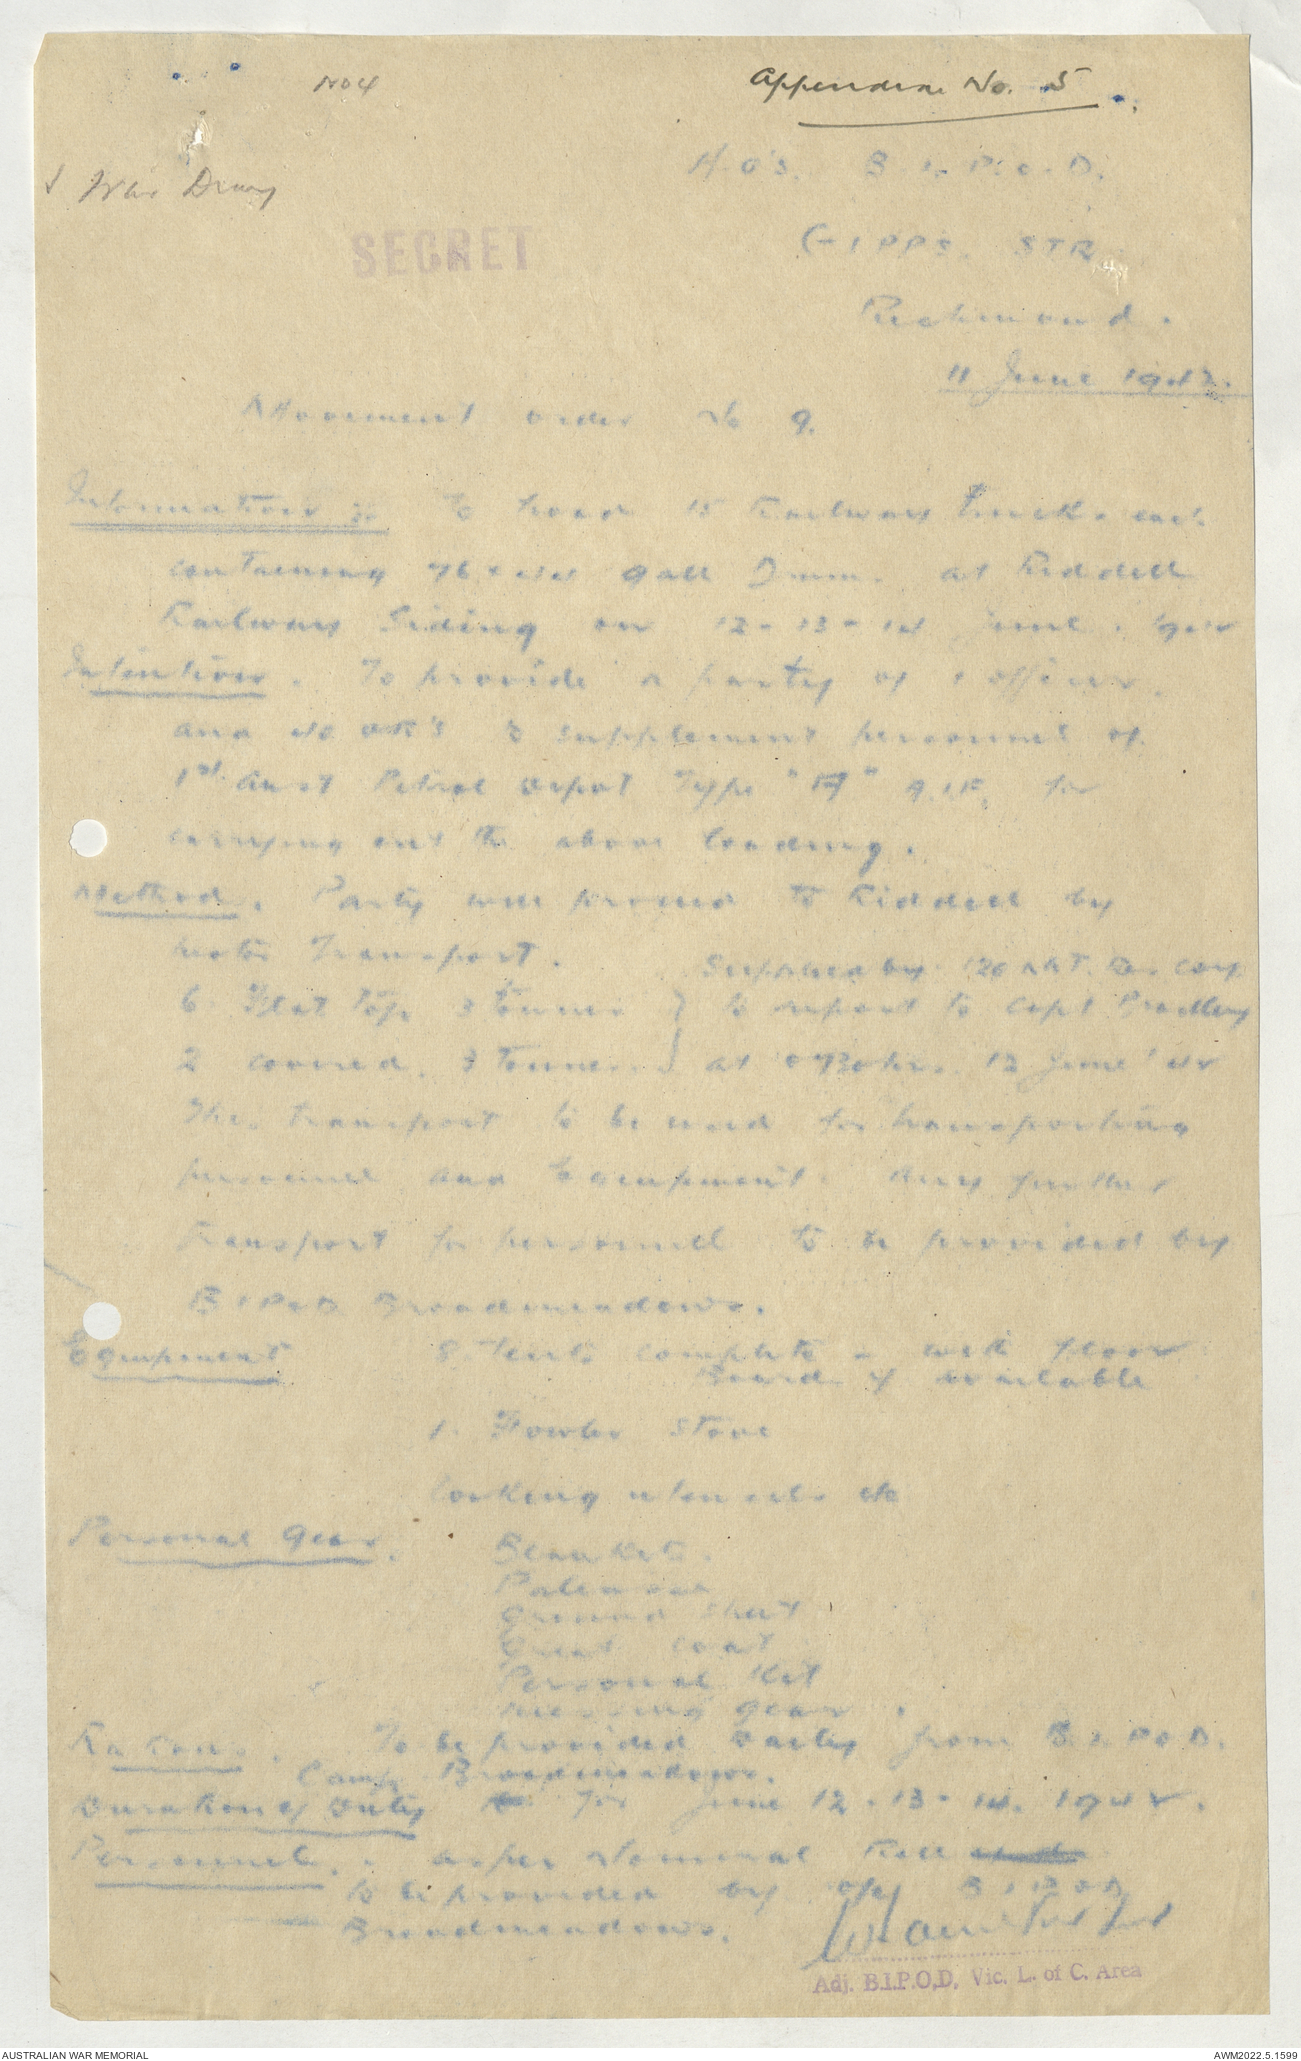 No 4
Appendix No. 5
War Diary
H.Q's. B.I.P.O.D.
SECRET
GIPPS. STR
Richmond.
11 June 1942.
Movement order No 9.
Information :- To load 15 Railway Trucks each
containing 76 x 44 gall Drum. at Riddell
Railway Siding on 12 - 13 - 14 June. 1942
Intention. To provide a party of 1 officer.
and 40 OR's to supplement personnel of
1st Aust Petrol Depot Type "A" A.I.F. for
carrying out the above loading.
Method. Party will proceed to Riddell by
motor Transport.
Supplied by 126 Coy
6 Flat Top 3 Tonner } to report to Capt Bradley
2 covered. 3 Tonner. } at 0730 hrs. 12 June '42
The transport to be used for transporting
personnel and Equipment. Any further
transport for personnel to be provided by
B.I.P.O.D Broadmeadows.
Equipment 8 Tents complete - with floor
Boards if available
1. Fowler Stove
Cooking utensils etc
Personal Gear. Blankets.
Paliasse
Ground sheet
Great coat
Personal Kit
Messing gear.
Rations. To be provided daily from B.I.P.O.D.
Camp Broadmeadows.
Duration of Duty for June 12 - 13 - 14. 1942.
Personnel. as per Nominal Roll
to be provided by B.I.P.O.D
Broadmeadows.
Adj. B.I.P.O.D. Vic. L. of C. Area
AUSTRALIAN WAR MEMORIAL
AWM2022.5.1599